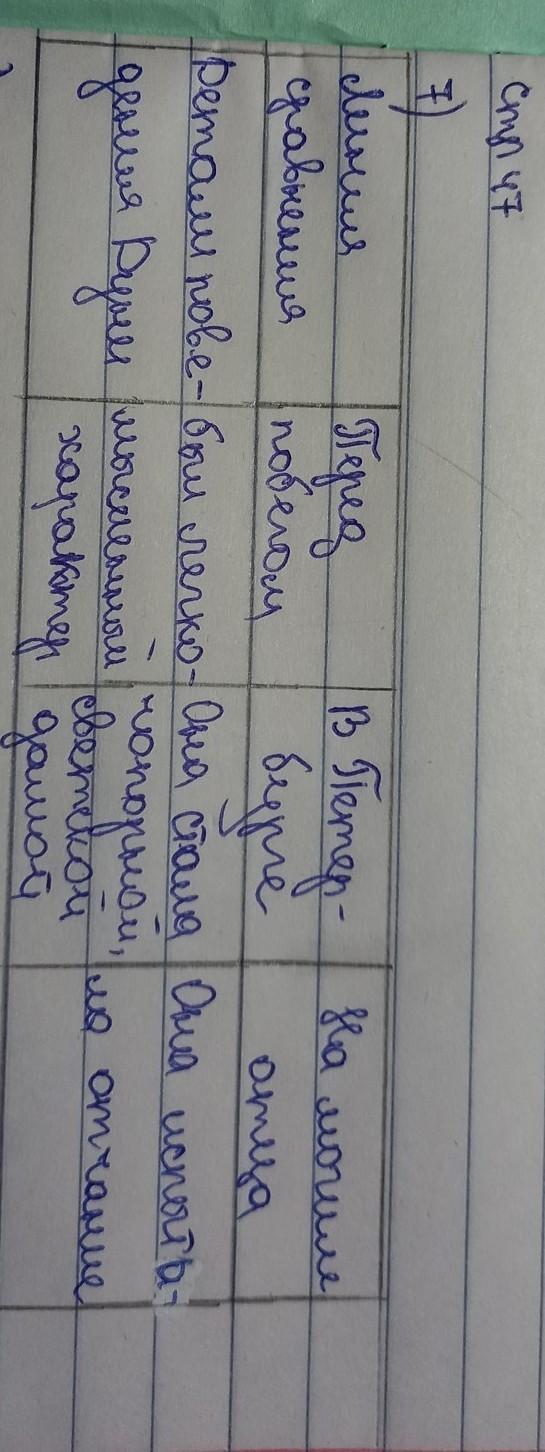 стр 47
7)
Линия
сравнения
Перед
побегом
В Петер-
бурге
На могиле
отца
Детали пове-
дения Дуни
был легко-
мысленный
характер
Она стала
чопорной,
светской
дамой
Она испыты-
ла отчание